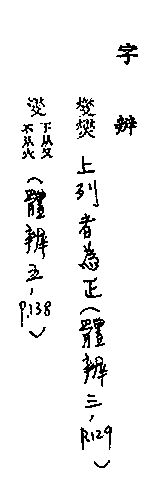 字辨
燮爕上列者為正(體辨三,P.129)
燮下从又不从火(體辨五,P.138)